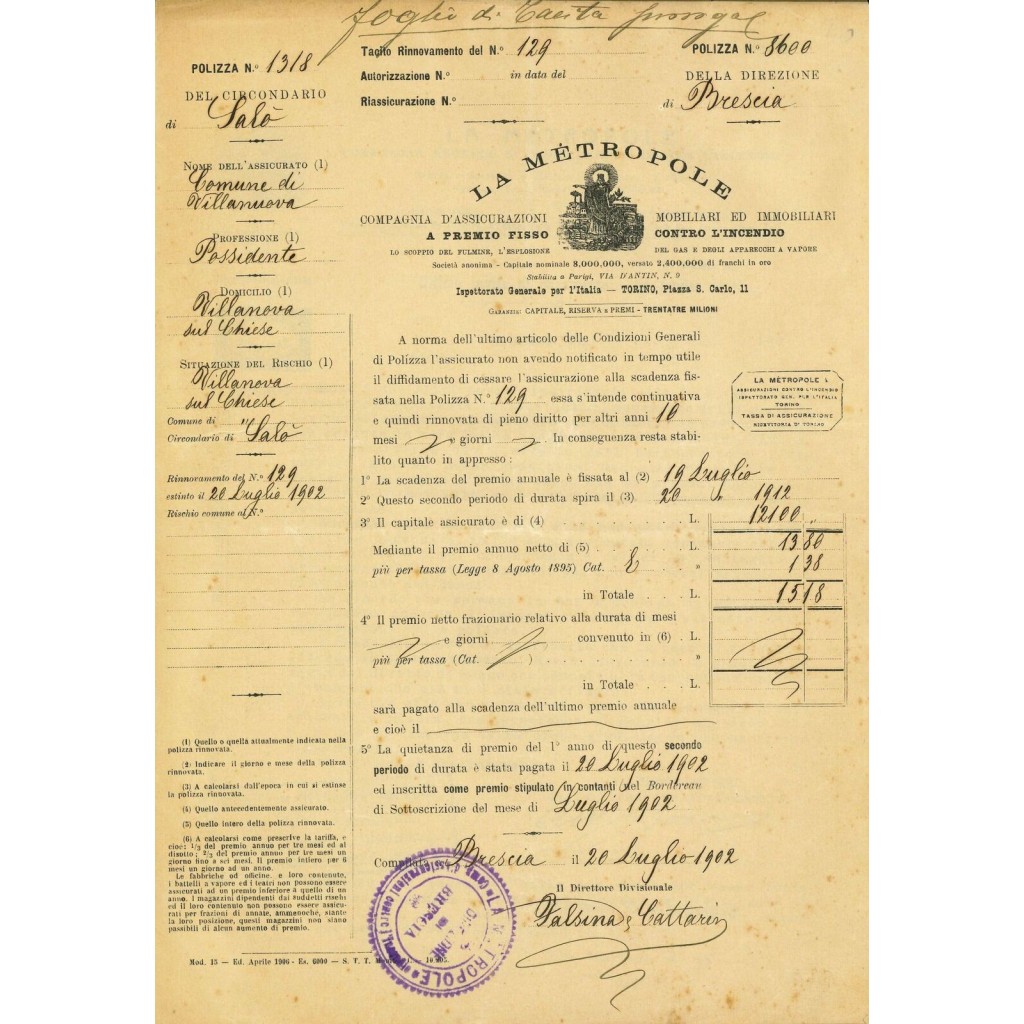 foglio di Tacita
POLIZZA N.º 1318
DEL CIRCONDARIO
di Salò
NOME DELL'ASSICURATO (1)
Comune di
Villanuova
PROFESSIONE (1)
Possidente
DOMICILIO (1)
Villanova
sul Chiese
SITUAZIONE DEL RISCHIO (1)
Villanova
sul Chiese
Comune di "
Circondario di Salò
Rinnovamento del N.º 129
estinto il 20 Luglio 1902
Rischio comune al N.º
(1) Quello o quella attualmente indicata nella
polizza rinnovata.
(2) Indicare il giorno e mese della polizza
rinnovata.
(3) A calcolarsi dall'epoca in cui si estinse
la polizza rinnovata.
(4) Quello antecedentemente assicurato.
(5) Quello intero della polizza rinnovata.
(6) A calcolarsi come prescrive la tariffa, e
cioè: 1/3 del premio annuo per tre mesi ed al
disotto; 2/3 del premio annuo per tre mesi un
giorno fino a sei mesi. Il premio intiero per 6
mesi un giorno ad un anno.
Le fabbriche od officine, e loro contenuto,
i battelli a vapore ed i teatri non possono essere
assicurati ad un premio inferiore a quello di un
anno. I magazzini dipendenti dai suddetti rischi
ed il loro contenuto non possono essere assicu-
rati per frazioni di annate, ammenochè, stante
la loro posizione, questi magazzini non siano
passibili di alcun aumento di premio.
Mod. 15 — Ed. Aprile 1906 - Es. 6000 — S. T. T.
Tacito Rinnovamento del N.º 129
Autorizzazione N.º in data del
Riassicurazione N.º
POLIZZA N.º 8600
DELLA DIREZIONE
di Brescia
LA MÉTROPOLE
COMPAGNIA D'ASSICURAZIONI MOBILIARI ED IMMOBILIARI
A PREMIO FISSO CONTRO L'INCENDIO
LO SCOPPIO DEL FULMINE, L'ESPLOSIONE DEL GAS E DEGLI APPARECCHI A VAPORE
Società anonima - Capitale nominale 8,000,000, versato 2,400,000 di franchi in oro
Stabilita a Parigi, VIA D'ANTIN, N. 9
Ispettorato Generale per l'Italia — TORINO, Piazza S. Carlo, 11
GARANZIE: CAPITALE, RISERVA e PREMI - TRENTATRE MILIONI
A norma dell'ultimo articolo delle Condizioni Generali
di Polizza l'assicurato non avendo notificato in tempo utile
il diffidamento di cessare l'assicurazione alla scadenza fis-
sata nella Polizza N.º 129 essa s'intende continuativa
e quindi rinnovata di pieno diritto per altri anni 10
mesi e giorni . In conseguenza resta stabi-
lito quanto in appresso:
LA MÉTROPOLE
ASSICURAZIONI CONTRO L'INCENDIO
ISPETTORATO GEN. PER L'ITALIA
TORINO
TASSA DI ASSICURAZIONE
RICEVITORIA DI TORINO
1º La scadenza del premio annuale è fissata al (2) 19 Luglio
2º Questo secondo periodo di durata spira il (3) 20 " 1912
3º Il capitale assicurato è di (4) L. 12100 "
Mediante il premio annuo netto di (5) L. 13 80
più per tassa (Legge 8 Agosto 1895) Cat. E » 1 38
in Totale L. 15 18
4º Il premio netto frazionario relativo alla durata di mesi
e giorni convenuto in (6) L.
più per tassa (Cat. ) »
in Totale L.
sarà pagato alla scadenza dell'ultimo premio annuale
e cioè il
5º La quietanza di premio del 1º anno di questo secondo
periodo di durata è stata pagata il 20 Luglio 1902
ed inscritta come premio stipulato in contanti nel Bordereau
di Sottoscrizione del mese di Luglio 1902
Compilata a Brescia il 20 Luglio 1902
Il Direttore Divisionale
Falsina e Cattarin
LA METROPOLE
BRESCIA